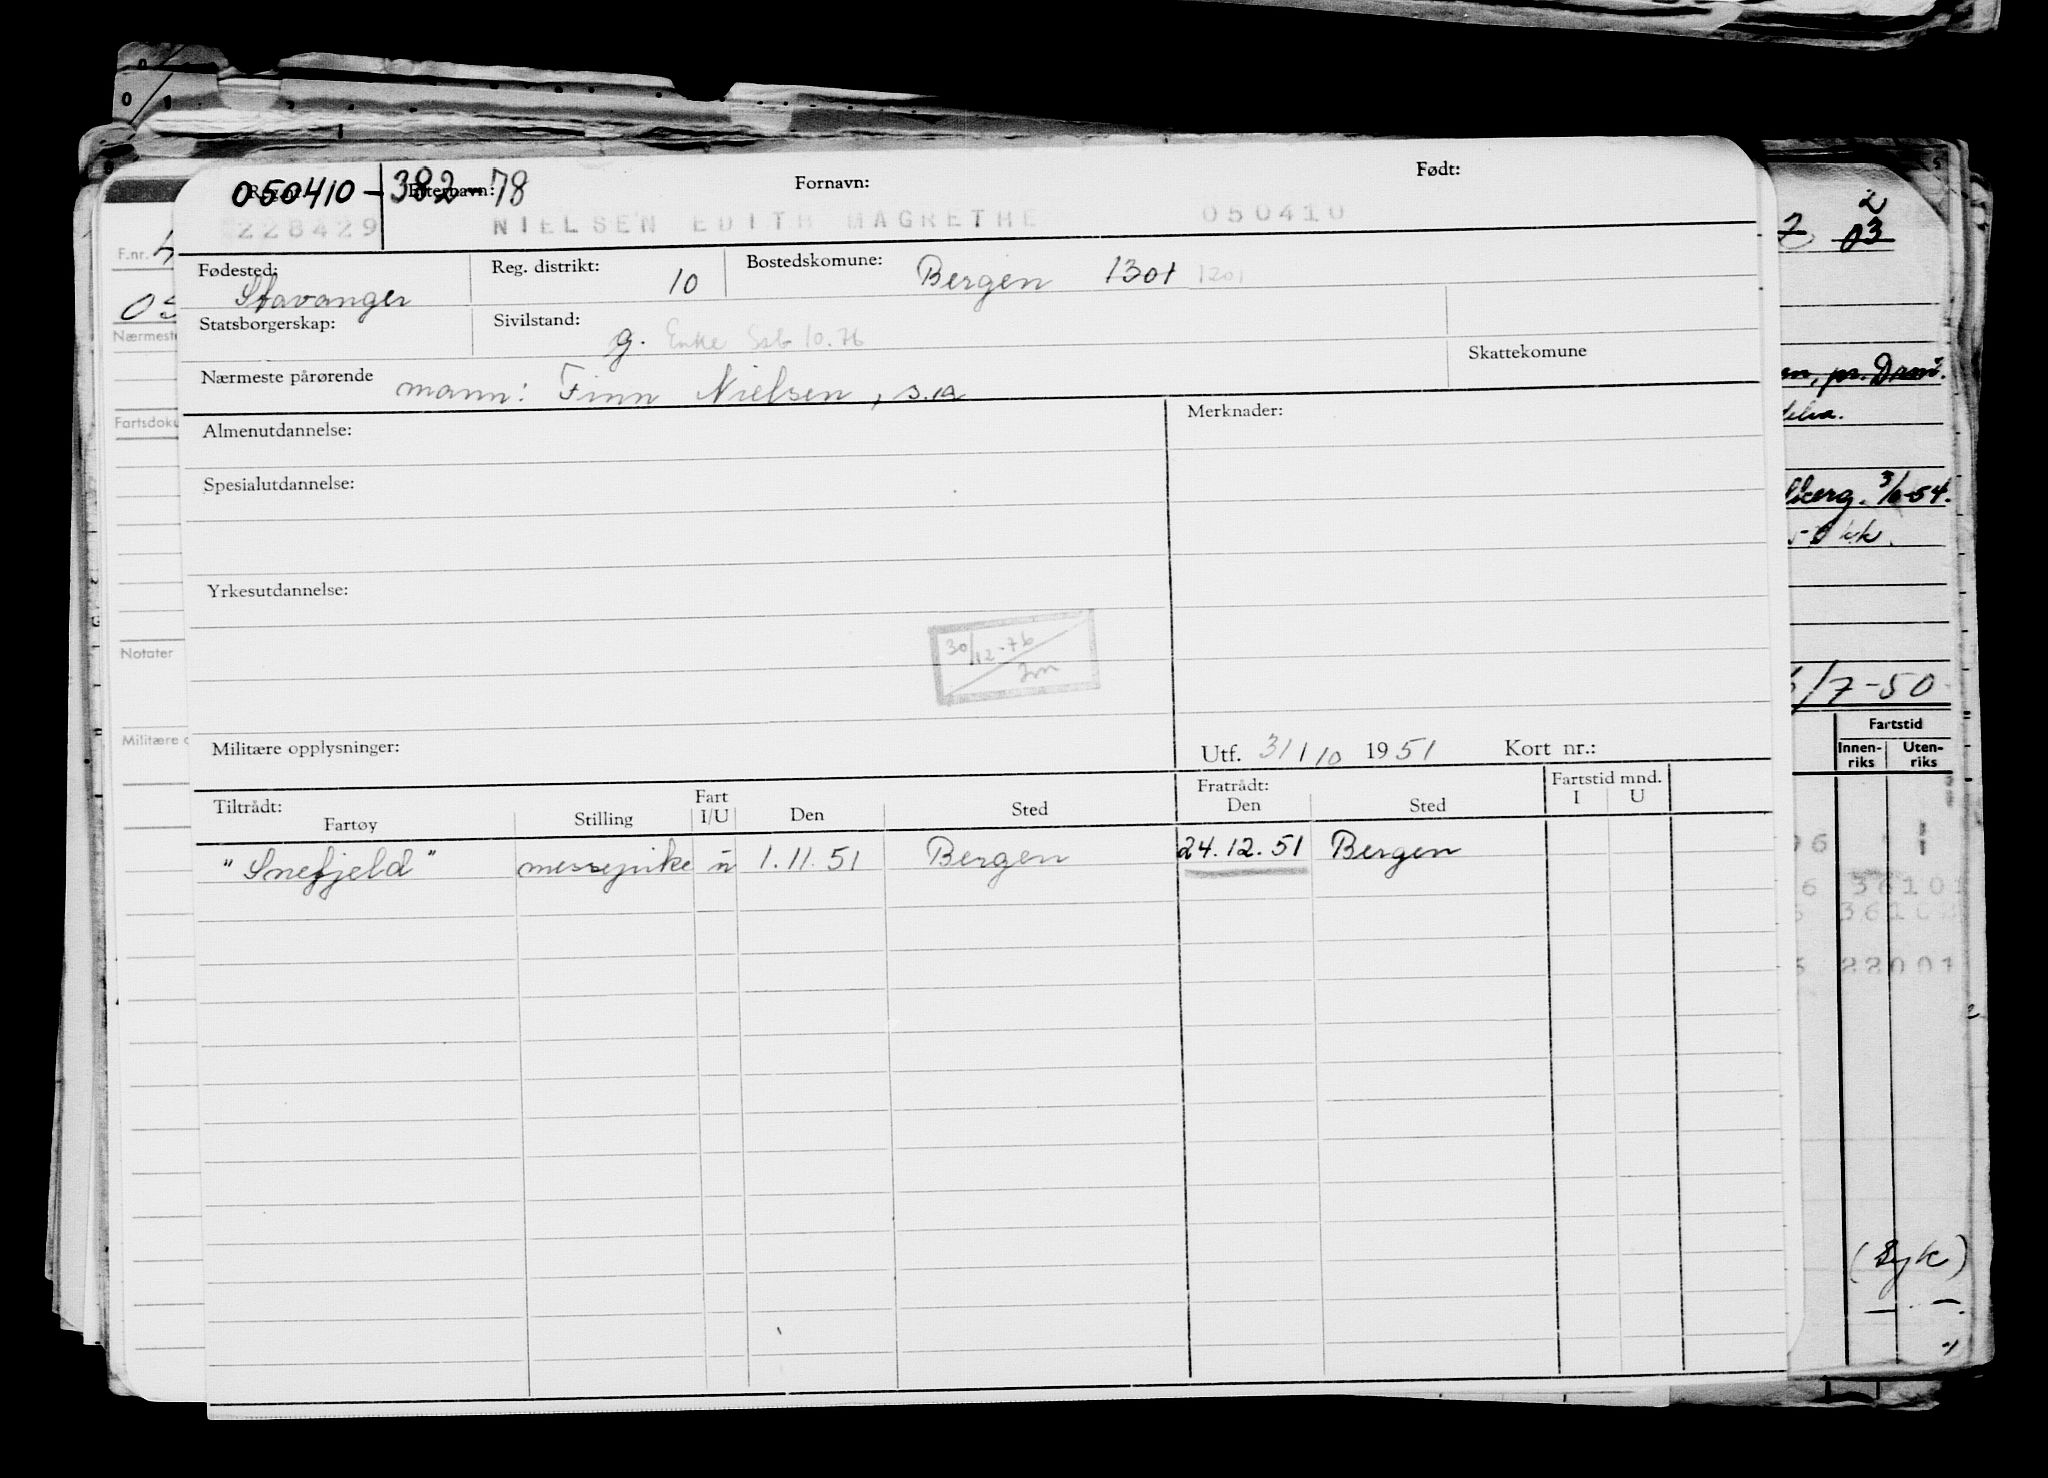 050410-382-78
Reg. nr. Etternavn: Fornavn: Født:
228429 NIELSEN EDITH MAGRETHE 050410
Fødested: Reg. distrikt: Bostedskomune:
Stavanger 10 Bergen 1301 1201
Statsborgerskap: Sivilstand:
g. Enke Ssb 10.76
Nærmeste pårørende Skattekomune
mann: Finn Nielsen, s.a
Almenutdannelse: Merknader:
Spesialutdannelse:
Yrkesutdannelse:
30/12-76
Militære opplysninger: Utf. 31/10 1951 Kort nr.:
Tiltrådt: Fart Fratrådt: Fartstid mnd.
Fartøy Stilling I/U Den Sted Den Sted I U
"Snefjeld" messepike u 1.11.51 Bergen 24.12.51 Bergen
F.nr. 4
Nærmeste
Fartsdoku
Notater
Militære o
2
03
en, pr. Dram.
lberg. 3/6-54.
/7-50
Fartstid
Innen-riks Uten-riks
36101
22001
(Syk)